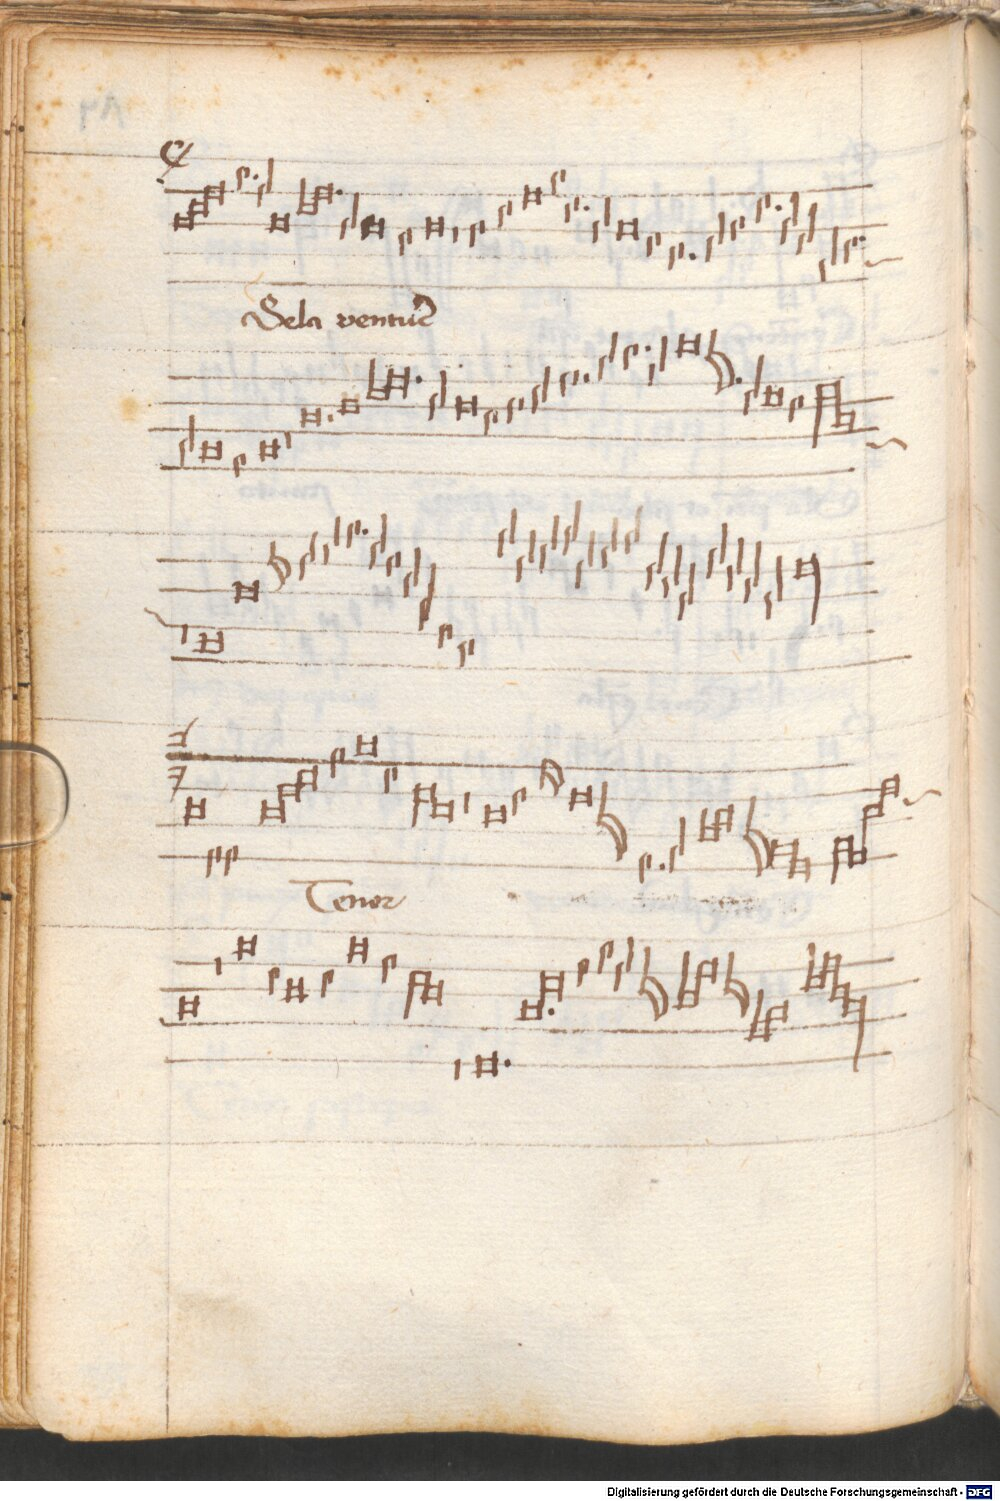 Dela ventur
Tenor
Digitalisierung gefördert durch die Deutsche Forschungsgemeinschaft - DFG